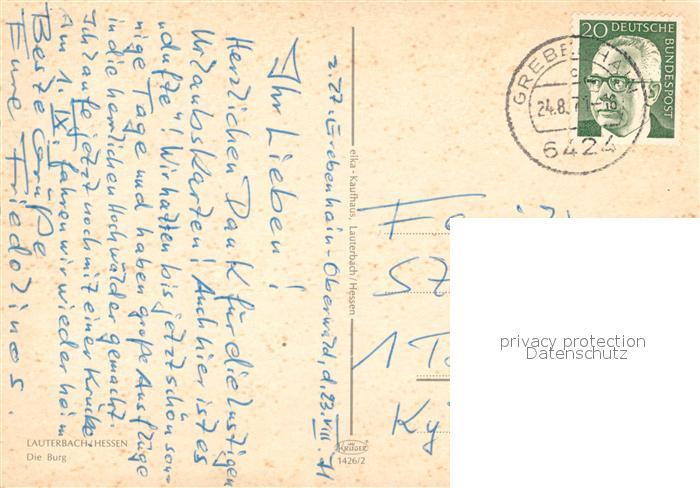 z. Zt. Grebenhain-Oberwald, d. 23. VIII. 71
Ihr Lieben!
Herzlichen Dank für die lustigen
Urlaubskarten! Auch hier ist es
„dufte“! Wir hatten bis jetzt schön son-
nige Tage und haben große Ausflüge
in die herrlichen Hochwälder gemacht.
Ich laufe jetzt noch mit einer Krücke.
Am 1. IX. fahren wir wieder heim
Beste Grüße
Eure Friedolines.
LAUTERBACH/HESSEN
Die Burg
eika-Kaufhaus, Lauterbach/Hessen
KRÜGER
1426/2
20 DEUTSCHE
BUNDESPOST
GREBENHAIN
24.8.71
6424
57
1
privacy protection
Datenschutz